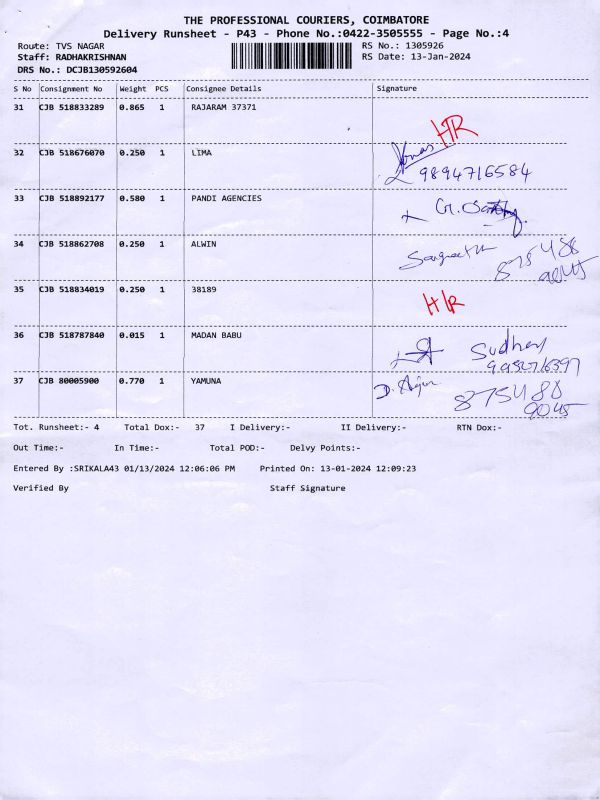 THE PROFESSIONAL COURIERS, COIMBATORE
Delivery Runsheet - P43 - Phone No.:0422-3505555 - Page No.:4
Route: TVS NAGAR RS No.: 1305926
Staff: RADHAKRISHNAN RS Date: 13-Jan-2024
DRS No.: DCJB130592604
S No Consignment No Weight PCS Consignee Details Signature
31 CJB 518833289 0.865 1 RAJARAM 37371 HR
32 CJB 518676070 0.250 1 LIMA
9894716584
33 CJB 518892177 0.580 1 PANDI AGENCIES
34 CJB 518862708 0.250 1 ALWIN 875488
9045
35 CJB 518834019 0.250 1 38189 HR
36 CJB 518787840 0.015 1 MADAN BABU Sudhey
37 CJB 80005900 0.770 1 YAMUNA 875488
9045
Tot. Runsheet:- 4 Total Dox:- 37 I Delivery:- II Delivery:- RTN Dox:-
Out Time:- In Time:- Total POD:- Delvy Points:-
Entered By :SRIKALA43 01/13/2024 12:06:06 PM Printed On: 13-01-2024 12:09:23
Verified By Staff Signature